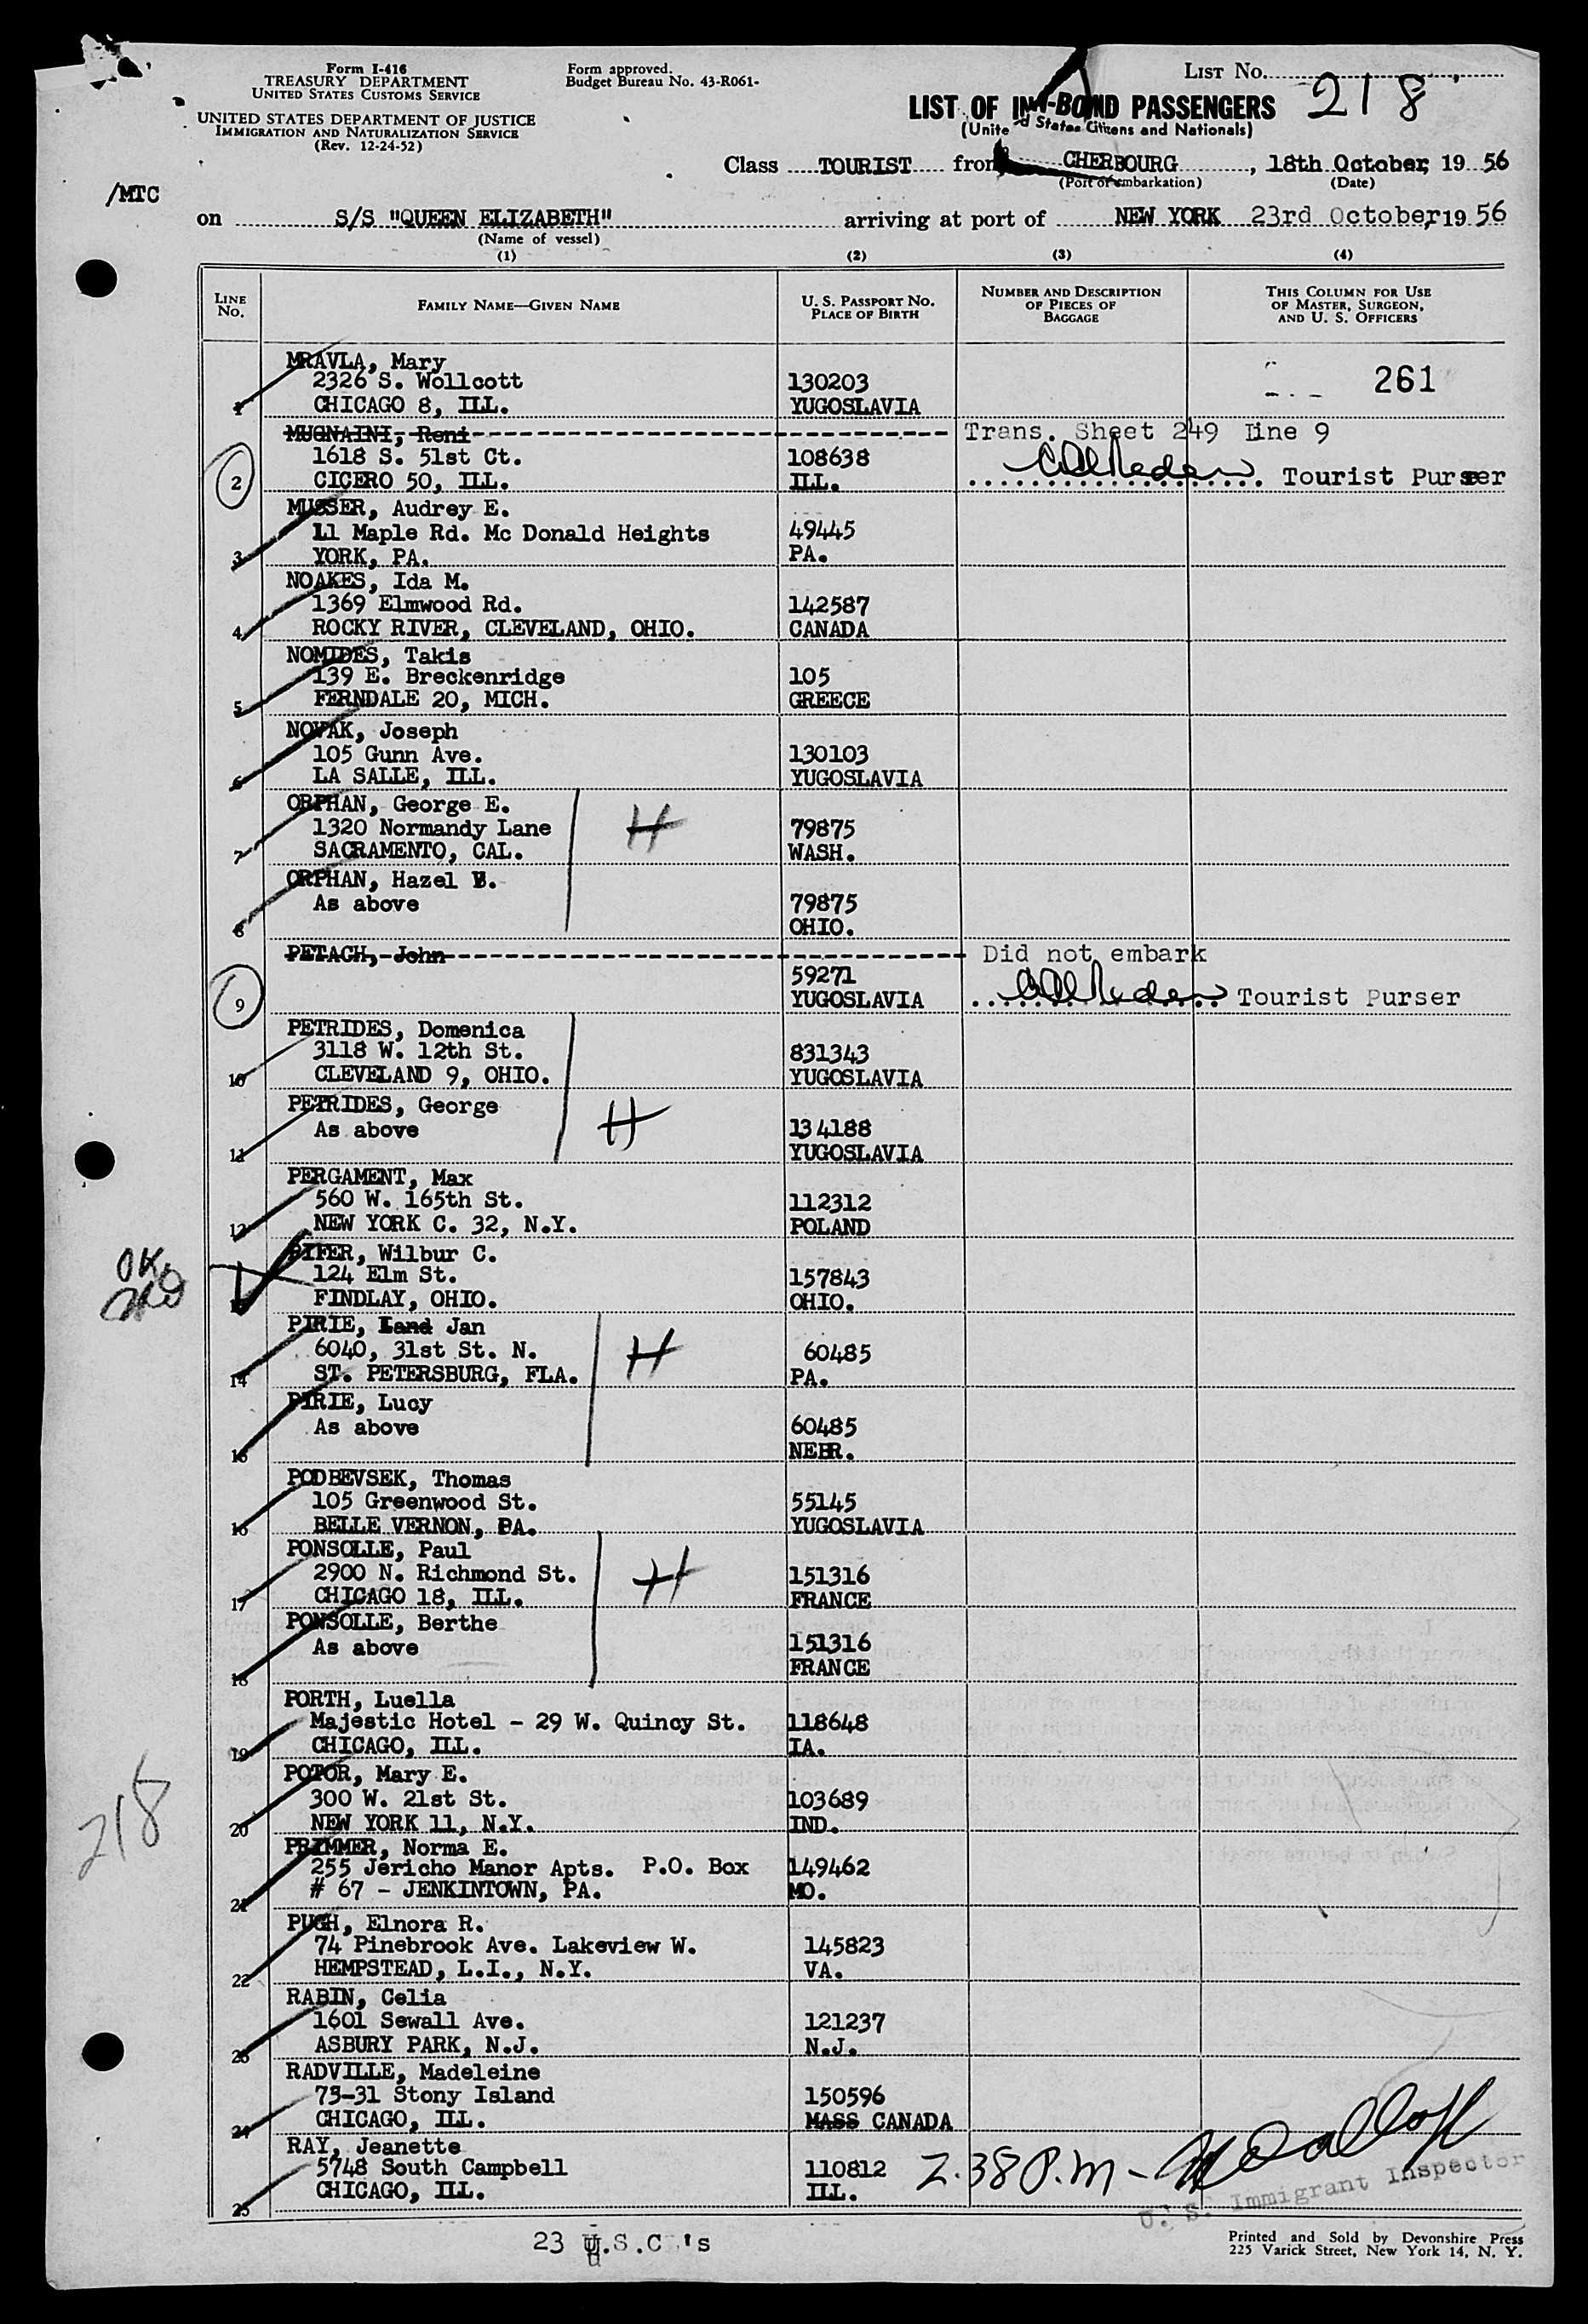 Form I-416
TREASURY DEPARTMENT
UNITED STATES CUSTOMS SERVICE
UNITED STATES DEPARTMENT OF JUSTICE
IMMIGRATION AND NATURALIZATION SERVICE
(Rev. 12-24-52)
Form approved.
Budget Bureau No. 43-R061-
LIST No. 218
LIST OF IN-BOND PASSENGERS
(United States Citizens and Nationals)
Class TOURIST from CHERBOURG, 18th October, 1956
(Port of embarkation) (Date)
/MTC
on S/S "QUEEN ELIZABETH" arriving at port of NEW YORK 23rd October, 1956
(Name of vessel)
(1) (2) (3) (4)
LINE No. FAMILY NAME—GIVEN NAME U. S. PASSPORT No. PLACE OF BIRTH NUMBER AND DESCRIPTION OF PIECES OF BAGGAGE THIS COLUMN FOR USE OF MASTER, SURGEON, AND U. S. OFFICERS
MRAVLA, Mary
2326 S. Wollcott 130203 261
1 CHICAGO 8, ILL. YUGOSLAVIA
MUGNAINI, Reni Trans. Sheet 249 Line 9
1618 S. 51st Ct. 108638
2 CICERO 50, ILL. ILL. Tourist Purser
MUSSER, Audrey E.
11 Maple Rd. Mc Donald Heights 49445
3 YORK, PA. PA.
NOAKES, Ida M.
1369 Elmwood Rd. 142587
4 ROCKY RIVER, CLEVELAND, OHIO. CANADA
NOMIDES, Takis
139 E. Breckenridge 105
5 FERNDALE 20, MICH. GREECE
NOVAK, Joseph
105 Gunn Ave. 130103
6 LA SALLE, ILL. YUGOSLAVIA
ORPHAN, George E.
1320 Normandy Lane H 79875
7 SACRAMENTO, CAL. WASH.
ORPHAN, Hazel B.
As above 79875
8 OHIO.
PETACH, John Did not embark
59271
9 YUGOSLAVIA Tourist Purser
PETRIDES, Domenica
3118 W. 12th St. 831343
10 CLEVELAND 9, OHIO. YUGOSLAVIA
PETRIDES, George
As above H 134188
11 YUGOSLAVIA
PERGAMENT, Max
560 W. 165th St. 112312
12 NEW YORK C. 32, N.Y. POLAND
PIFER, Wilbur C.
OK 124 Elm St. 157843
13 FINDLAY, OHIO. OHIO.
PIRIE, Iand Jan
6040, 31st St. N. H 60485
14 ST. PETERSBURG, FLA. PA.
PIRIE, Lucy
As above 60485
15 NEBR.
PODBEVSEK, Thomas
105 Greenwood St. 55145
16 BELLE VERNON, PA. YUGOSLAVIA
PONSOLLE, Paul
2900 N. Richmond St. H 151316
17 CHICAGO 18, ILL. FRANCE
PONSOLLE, Berthe
As above 151316
18 FRANCE
PORTH, Luella
Majestic Hotel - 29 W. Quincy St. 118648
19 CHICAGO, ILL. IA.
POTOR, Mary E.
218 300 W. 21st St. 103689
20 NEW YORK 11, N.Y. IND.
PRIMMER, Norma E.
255 Jericho Manor Apts. P.O. Box 149462
21 # 67 - JENKINTOWN, PA. MO.
PUGH, Elnora R.
74 Pinebrook Ave. Lakeview W. 145823
22 HEMPSTEAD, L.I., N.Y. VA.
RABIN, Celia
1601 Sewall Ave. 121237
23 ASBURY PARK, N.J. N.J.
RADVILLE, Madeleine
75-31 Stony Island 150596
24 CHICAGO, ILL. MASS CANADA
RAY, Jeanette
5748 South Campbell 110812 2.38 P.m -
25 CHICAGO, ILL. ILL. U. S. Immigrant Inspector
23 U.S.C 's
Printed and Sold by Devonshire Press
225 Varick Street, New York 14, N. Y.